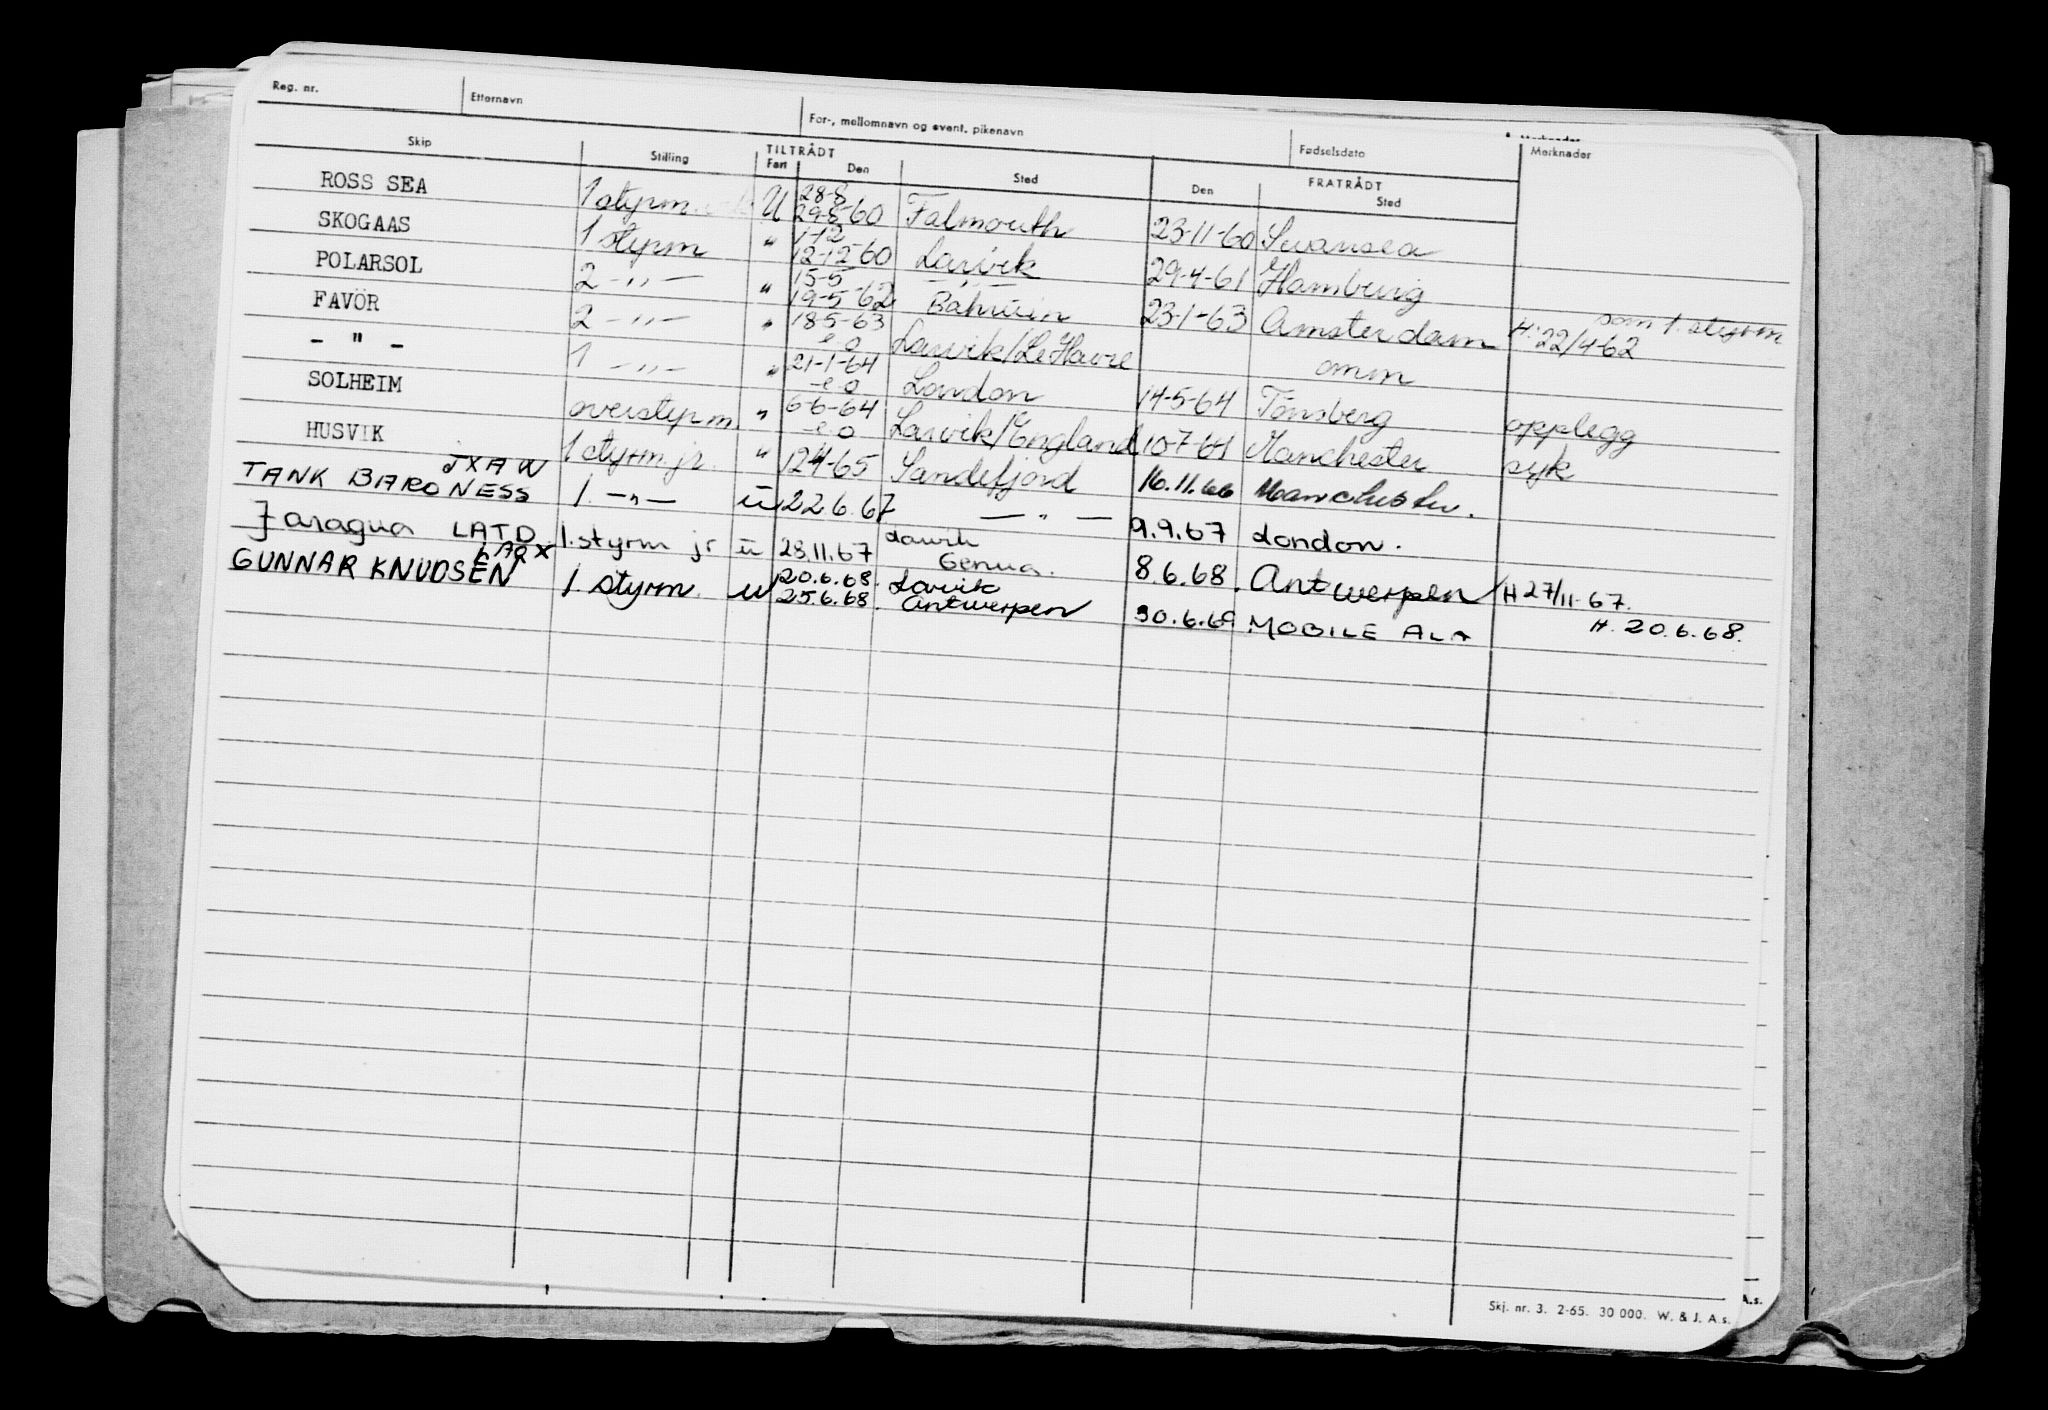 Reg. nr. Etternavn For-, mellomnavn og event. pikenavn Fødselsdato Merknader
Skip Stilling TILTRÅDT FRATRÅDT Merknader
Fart Den Sted Den Sted
ROSS SEA 1 styrm. U 28-8 29-8-60 Falmouth 23-11-60 Swansea
SKOGAAS 1 styrm " 1-12 12-12-60 Larvik 29-4-61 Hamburg
POLARSOL 2 - " - " 15-5 19-5-62 - " - Bahrein 23-1-63 Amsterdam H. 22/4-62 som 1. styrm
FAVÖR 2 - " - " 18-5-63 e o Larvik/Le Havre omm
- " - 1 - " - " 21-1-64 -e o London 14-5-64 Tønsberg opplegg
SOLHEIM overstyrm. " 6-6-64 -e o Larvik/England 10-7-64 Manchester syk
HUSVIK 1 styrm jr. " 12-4-65 Sandefjord 16.11.66 Manchester.
TANK BARONESS JXAW 1. - " - u 22.6.67 - " - 9.9.67 London.
Jaragua LATD 1. styrm jr u 28.11.67 Larvik Genua. 8.6.68. Antwerpen H 27/11-67.
GUNNAR KNUDSEN LAQX 1. styrm. u 20.6.68. 25.6.68. Larvik Antwerpen 30.6.69 MOBILE ALA H. 20.6.68.
Skj. nr. 3. 2-65. 30 000. W. & J. A.s.
A.s.